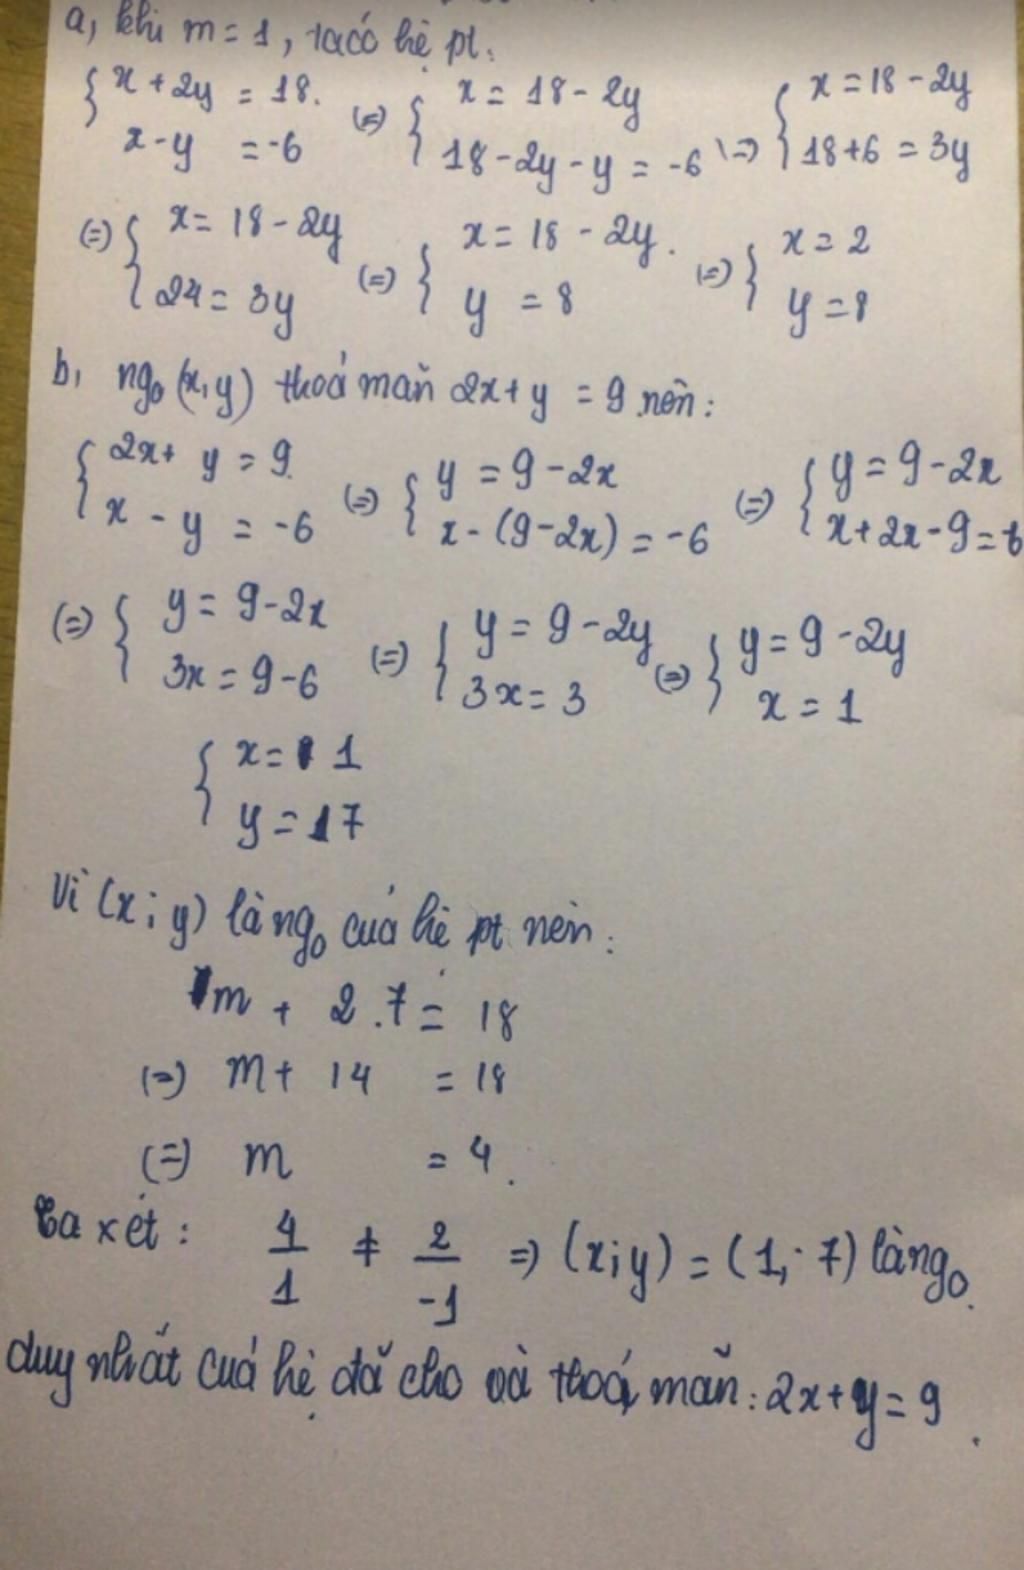 a, khi m = 1, ta có hệ pt.
{ x + 2y = 18. (=) { x = 18 - 2y (=) { x = 18 - 2y
x - y = -6 18 - 2y - y = -6 18 + 6 = 3y
(=) { x = 18 - 2y (=) { x = 18 - 2y. (=) { x = 2
24 = 3y y = 8 y = 8
b, ngo (x,y) thoả mãn 2x + y = 9 nên:
{ 2x + y = 9. (=) { y = 9 - 2x (=) { y = 9 - 2x
x - y = -6 x - (9 - 2x) = -6 x + 2x - 9 = -6
(=) { y = 9 - 2x (=) { y = 9 - 2y (=) { y = 9 - 2y
3x = 9 - 6 3x = 3 x = 1
{ x = 1
y = 7
Vì (x; y) là ngo của hê pt nên:
m + 2.7 = 18
(=) m + 14 = 18
(=) m = 4.
Ta xét: 4/1 ≠ 2/-1 => (x;y) = (1; 7) là ngo.
duy nhất của hệ đã cho và thoả mãn: 2x + y = 9.